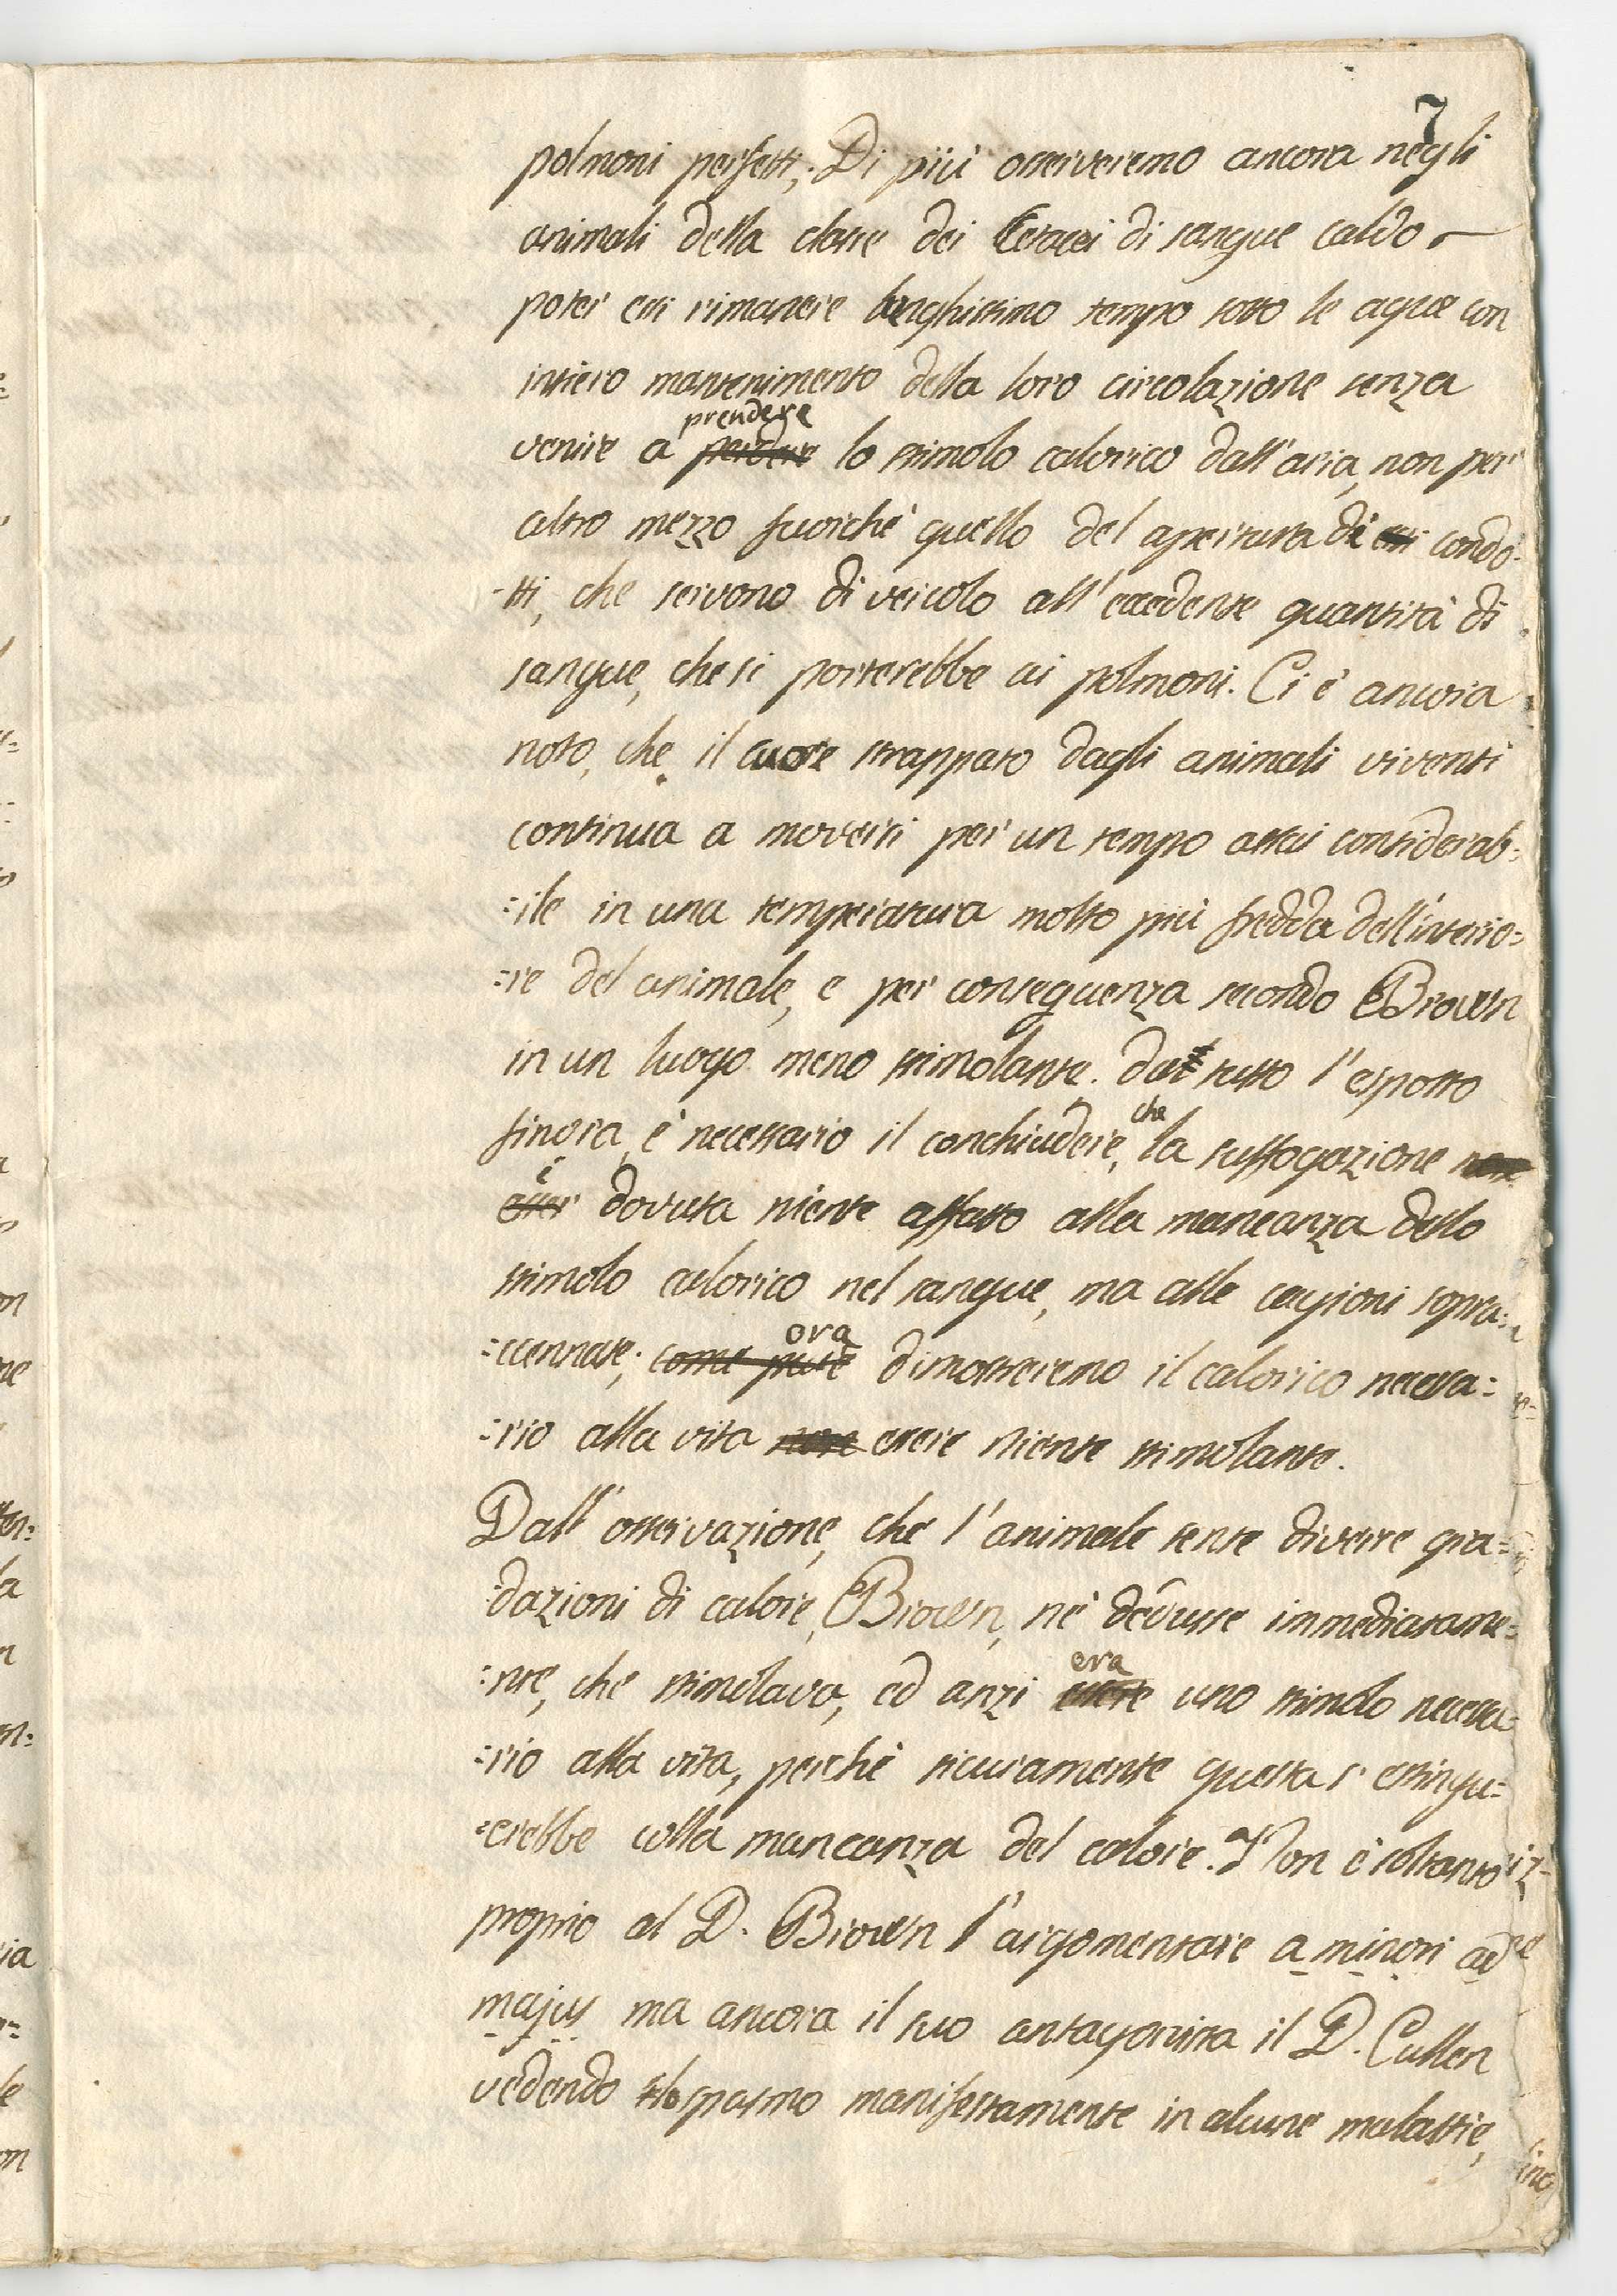 7
polmoni perfetti; Di più osserveremo ancora negli
animali della classe dei Cetacei di sangue caldo
poter essi rimanere lunghissimo tempo sotto le aque con
intiero mantenimento della loro circolazione senza
prendere
venire a perdere lo stimolo calorico dall'aria, non per
altro mezzo fuorchè quello del apertura di essi condo-
-tti, che servono di veicolo all'eccedente quantità di
sangue, che si porterebbe ai polmoni. Ci è ancora
noto, che il cuore strappato dagli animali viventi
continua a moversi per un tempo assai considerab:
:ile in una temperatura molto più fredda dell'interio:
:re del animale, e per conseguenza secondo Brown
in un luogo meno stimolante. da tutto l'esposto
che
finora, è necessario il conchiudere, la suffogazione non
è
esser dovuta niente affatto alla mancanza dello
stimolo calorico nel sangue, ma alle cagioni sopra:
ora
:ccennate; come pure dimostreremo il calorico necessa:
:rio alla vita non essere niente stimolante.
Dall'osservazione, che l'animale sente diverse gra:
:dazioni di calore, Brown, nè dedusse immediatame:
era
:nte, che stimolava, ed anzi essere uno stimolo necessa:
:rio alla vita, perchè sicuramente questa s'estingu:
:erebbe colla mancanza del calore. Non è soltanto
proprio al D. Brown l'argomentare a minori ad
majus ma ancora il suo antagonista il D. Cullen
vedendo lo spasmo manifestamente in alcune malattie,